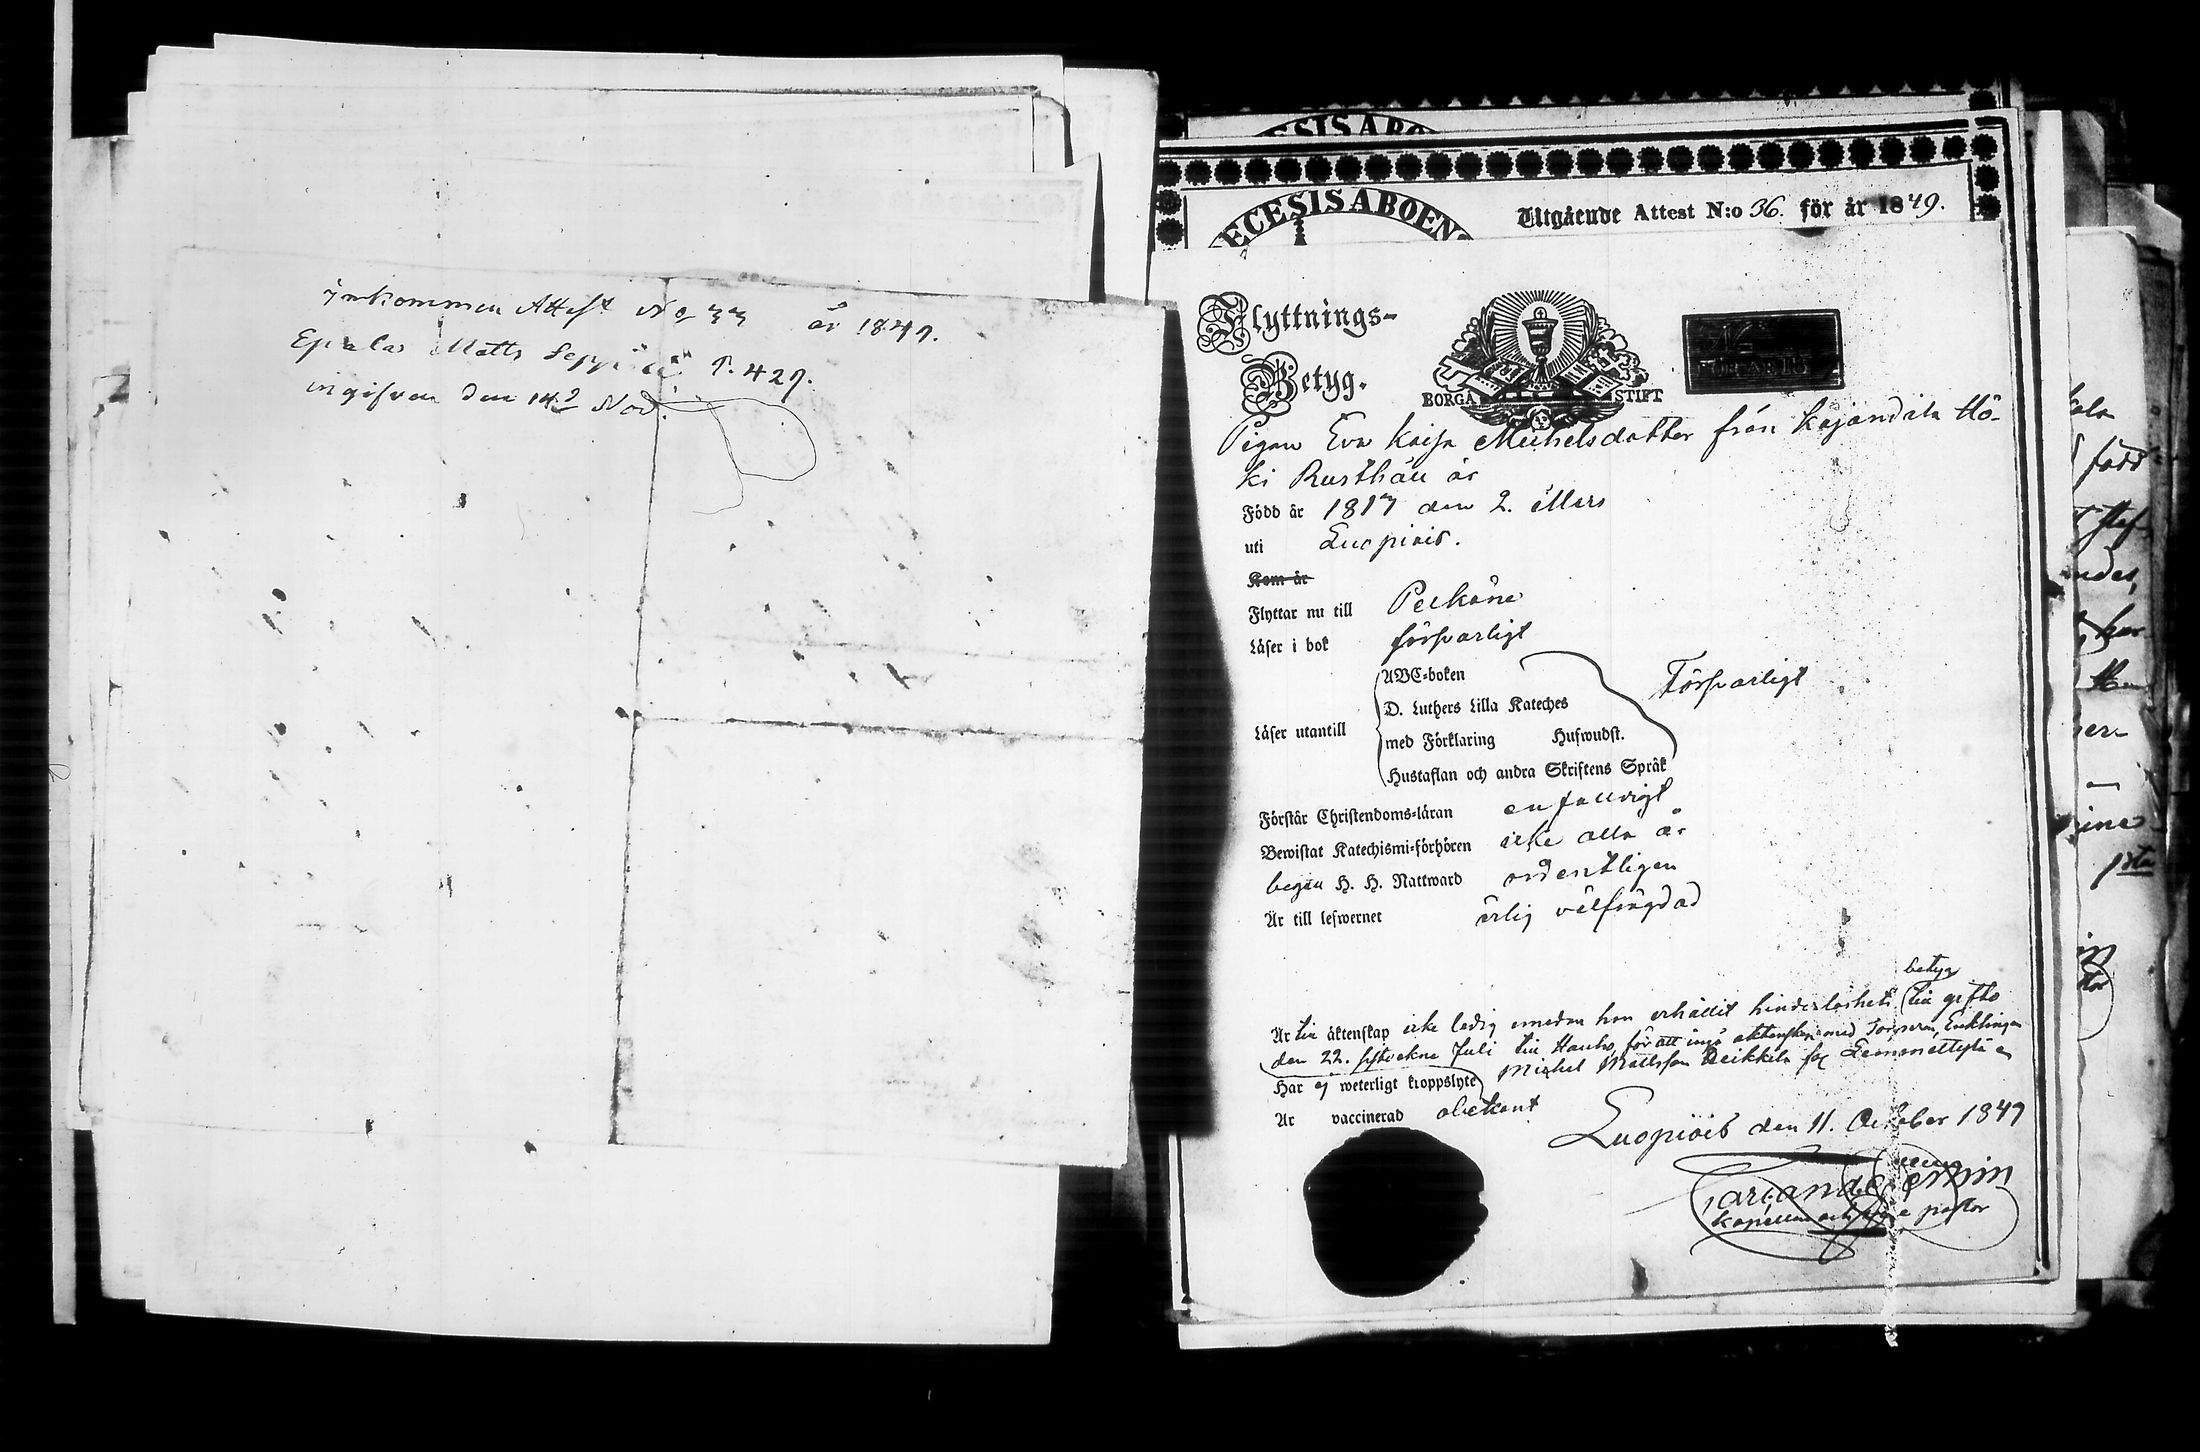 Inkommen Attest No 33 år 1849.
Epaala Matts Seppälä P. 429.
ingifven den 14d Nov.
ECESIS ABO
ECESIS ABOEN
Utgående Attest N:o 36. för år 1849.
Flyttnings-
Betyg.
BORGÅ STIFT
N
FÖR ÅR 18
Pigan Eva Kaisa Michelsdotter från Kajandila Hö-
ki Rusthåll är
Född år 1817 den 2. Mars
uti Luopiois.
Kom år
Flyttar nu till Pelkäne
Läser i bok försvarligt
Läser utantill
ABC-boken
D. Luthers Lilla Kateches
med Förklaring Hufwudst.
Hustaflan och andra Skriftens Språk
Försvarligt
Förstår Christendoms-läran enfalldigt
Bewistat Katechismi-förhören icke alla år
begått H. H. Nattward ordentligen
Är till lefwernet ärlig välfrägdad
betyg
Är till äktenskap icke ledig emedan hon erhållit hinderlöshets till gifte
den 22. sistvekne Juli till Hauho för att ingå äktenskap med Torparen, Enklingen
Michel Mattsson Heikkilä fr Lemmettylä
Har ej weterligt kroppslyte
Är vaccinerad obekant
Luopiois den 11. October 1849
Kapellan och pastor